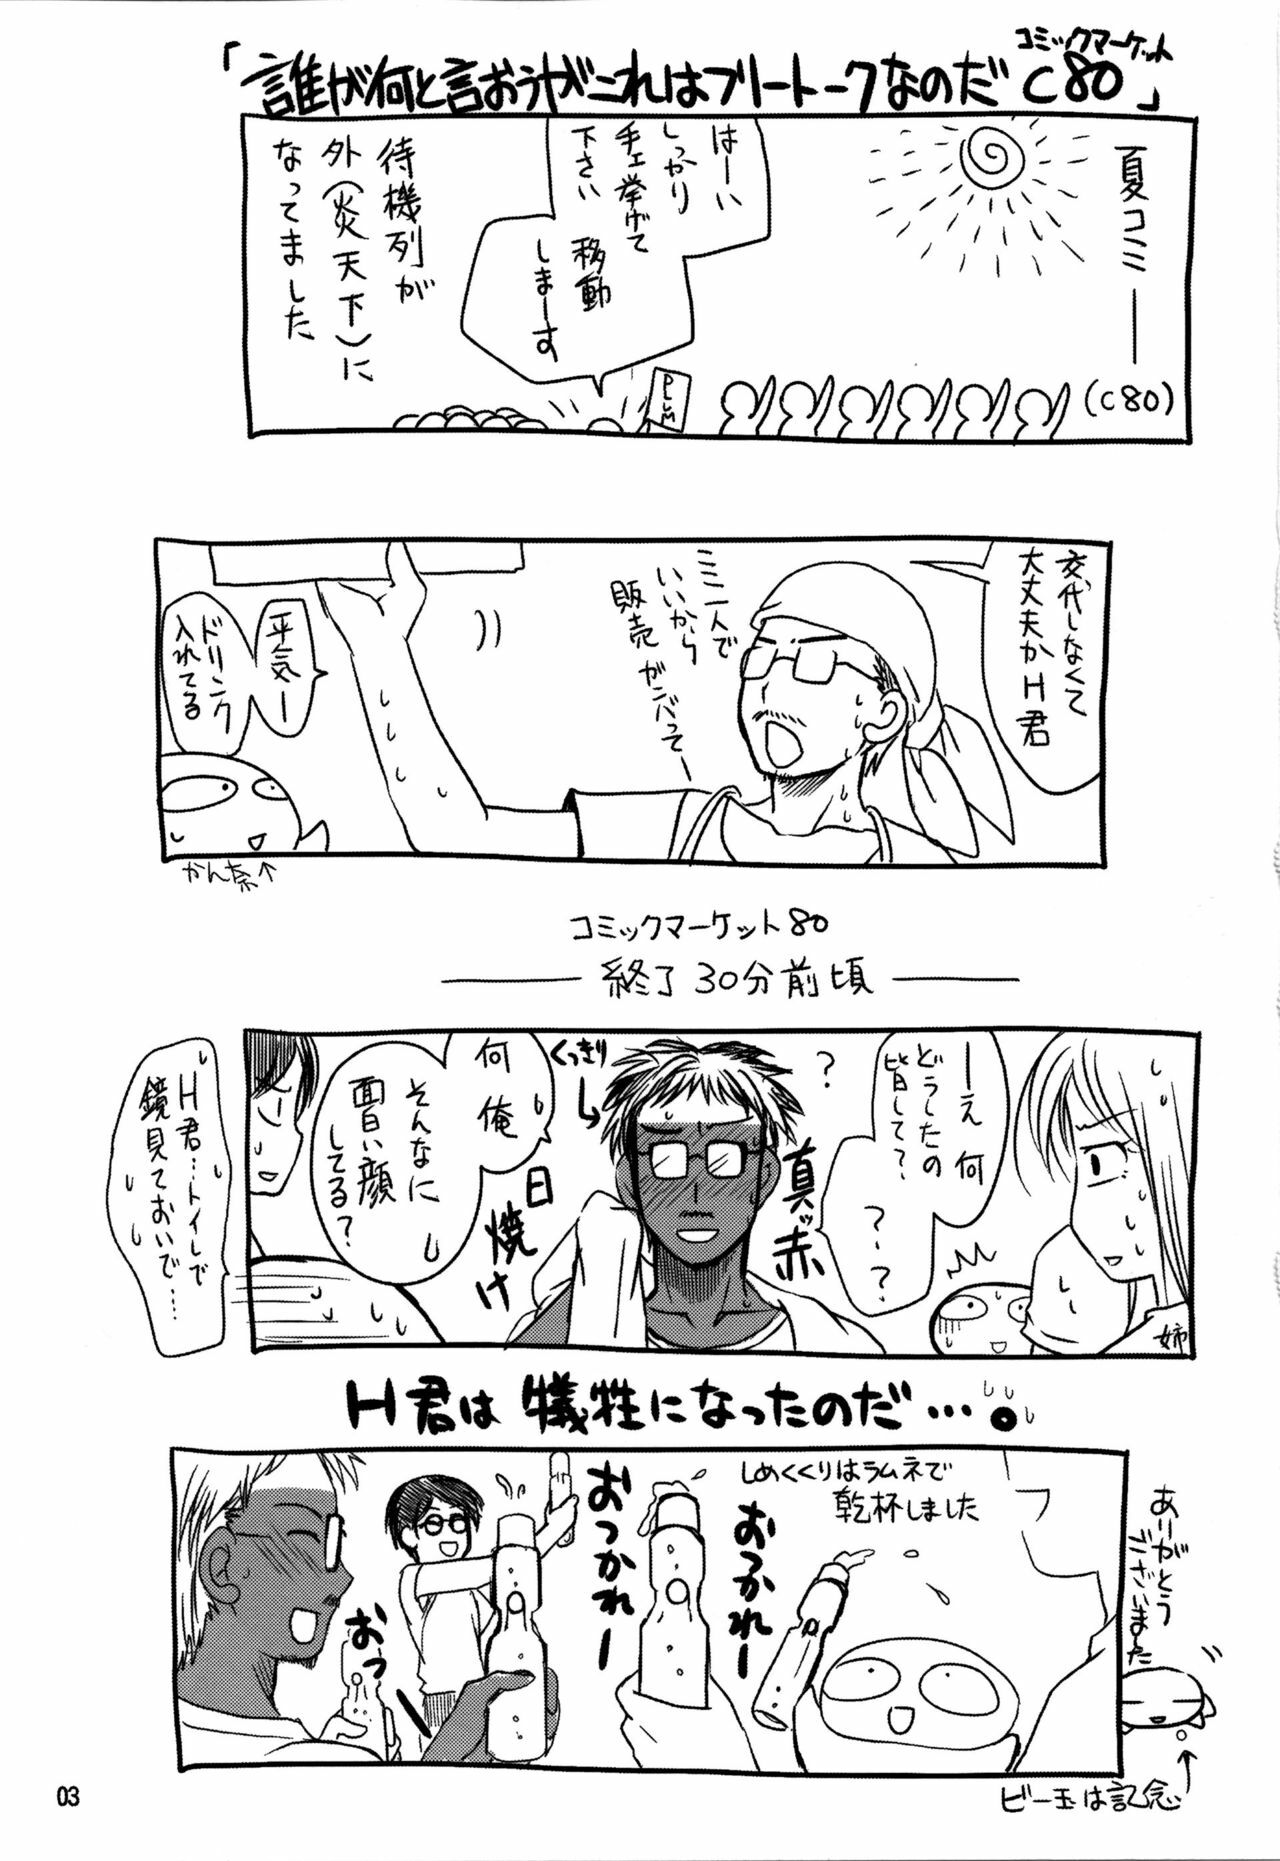 コミックマーケット
「誰が何と言おうがこれはフリートークなのだ C80」
夏コミ──
(C80)
はーい
しっかり
手ェ挙げて
下さい
移動
しまーす
PLUM
待機列が
外(炎天下)に
なってました
交代しなくて
大丈夫かH君
ミミ一人で
いいから
販売ガンバってー
平気ー
ドリンク
入れてる
かん奈↑
コミックマーケット80
── 終了30分前頃 ──
ーえ 何
どうしたの
皆して?
?
?~?
真ッ赤
くっきり
日焼け
何 俺
そんなに
面白い顔
してる?
H君…トイレで
鏡見ておいで…
姉
H君は 犠牲になったのだ…。
しめくくりはラムネで
乾杯しました
おつかれー
おつかれー
おっ
ありがとう
ございました
ビー玉は記念
03